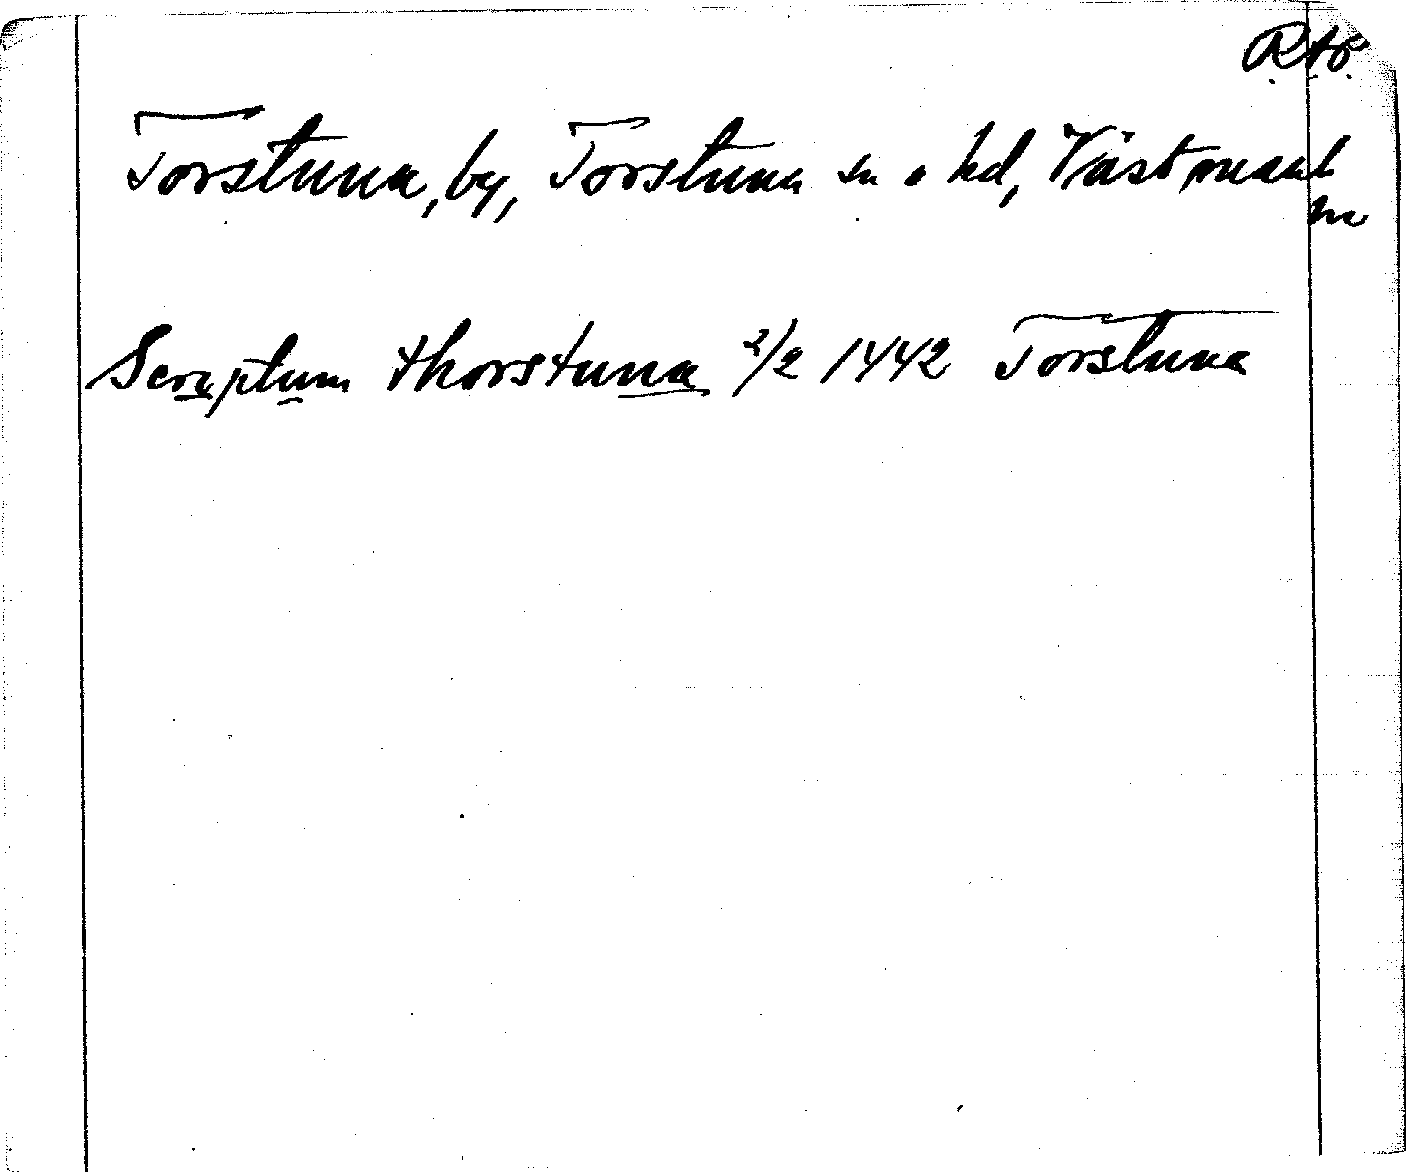 RAp.
Torstuna, by, Torstuna sn o hd, Västmanl
Scriptum thorstuna 2/2 1442 Torstuna